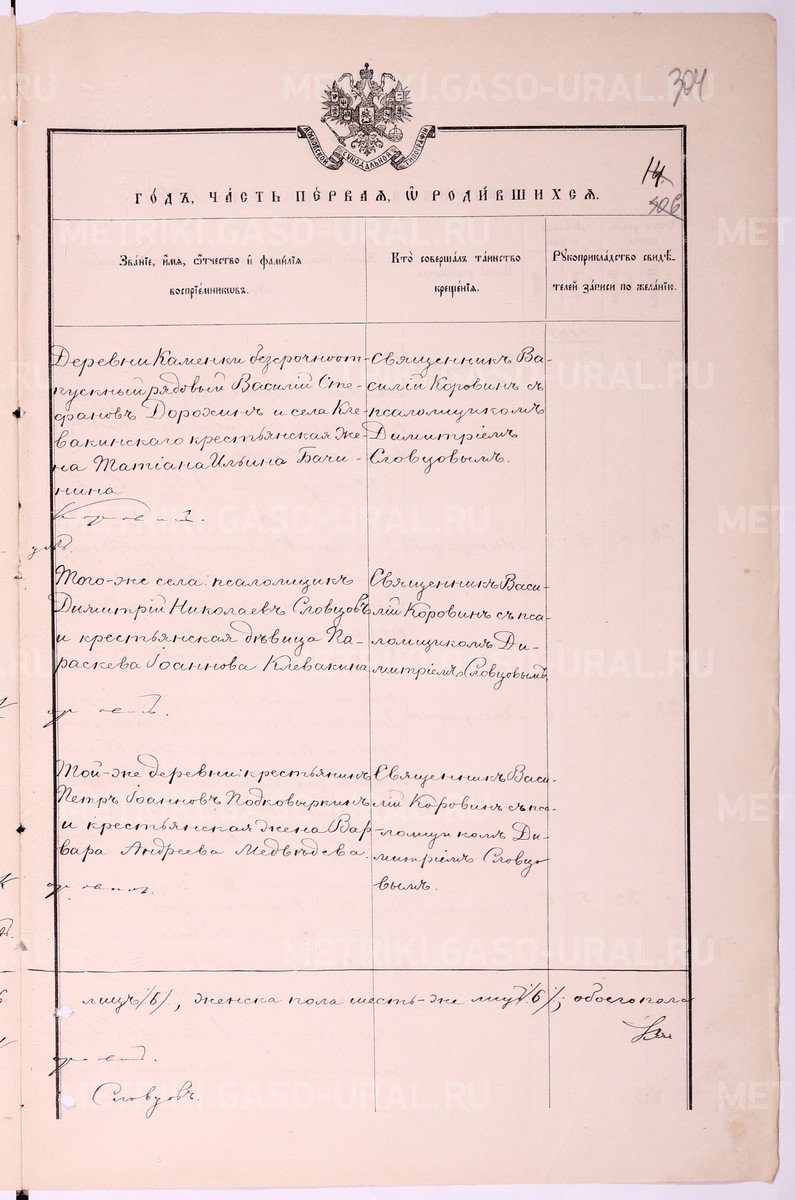 304
МОСКОВСКОЙ СѴНОДАЛЬНОЙ ТИПОГРАФІИ
14
306
ГО́ДЪ, ЧА́СТЬ ПЕ́РВАЯ, Ѿ РОДИ́ВШИХСЯ.
Зва́нїе, и҆́мя, ѻ҆́тчество и҆ фами́лїя
воспрїе́мникѡвъ.
Кто̀ соверша́лъ та́инство
креще́нїя.
Рꙋкоприкла́дство свидѣ́-
телей за́писи по жела́нїю.
Деревни Каменки безсрочноот-
пускный рядовый Василій Сте-
фановъ Дорохинъ и села Кле-
вакинскаго крестьянская же-
на Татіана Ильина Бачи-
нина
Священникъ Ва-
силій Коровинъ съ
псаломщикомъ
Димитріемъ
Словцовымъ.
Того-же села: псаломщикъ
Димитрій Николаевъ Словцовъ
и крестьянская дѣвица Па-
раскева Іоаннова Клевакина
Священникъ Васи-
лій Коровинъ съ пса-
ломщикомъ Ди-
митріемъ Словцовымъ
Той-же деревни: крестьянинъ
Петръ Іоанновъ Подковыркинъ
и крестьянская жена Вар-
вара Андреева Медвѣдева.
Священникъ Васи-
лій Коровинъ съ пса-
ломщикомъ Ди-
митріемъ Словцо
вымъ.
лицъ /6/, женска пола шесть-же лицъ /6/; обоего пола
Словцовъ.
METRIKI.GASO-URAL.RU